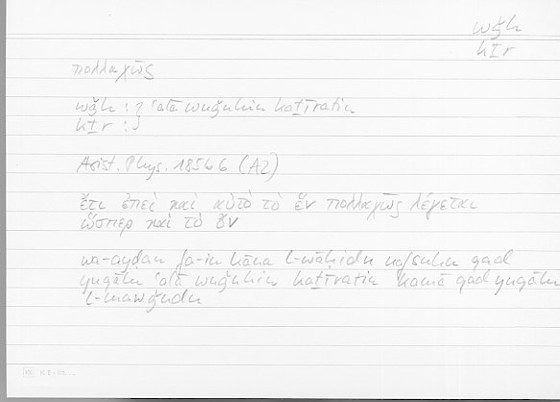 wǧh
kṯr
πολλαχῶς
wǧh : } ʿalā wuǧūhin kaṯīratin
kṯr : }
Arist. Phys. 185b6 (A2)
ἔτι ἐπεὶ καὶ αὐτὸ τὸ ἓν πολλαχῶς λέγεται
ὥσπερ καὶ τὸ ὄν
wa-ayḍan fa-in kāna l-wāḥidu nafsuhu qad
yuqālu ʿalā wuǧūhin kaṯīratin kamā qad yuqālu
l-mawǧūdu